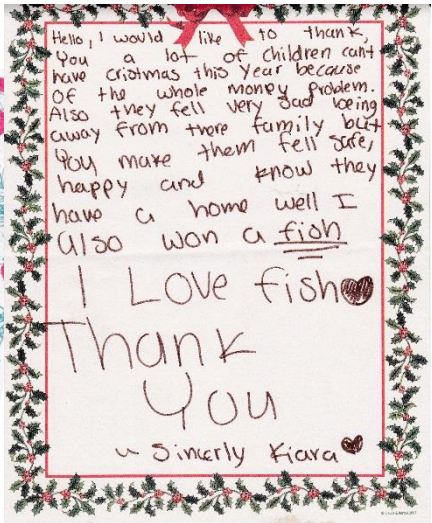 Hello, I would like to thank,
You a lot of children cant
have cristmas this year because
of the whole money problem.
Also they fell very sad being
away from there family but
You make them fell safe,
happy and know they
have a home well I
also won a fish
I Love fish
Thank
You
~ Sincerly Kiara